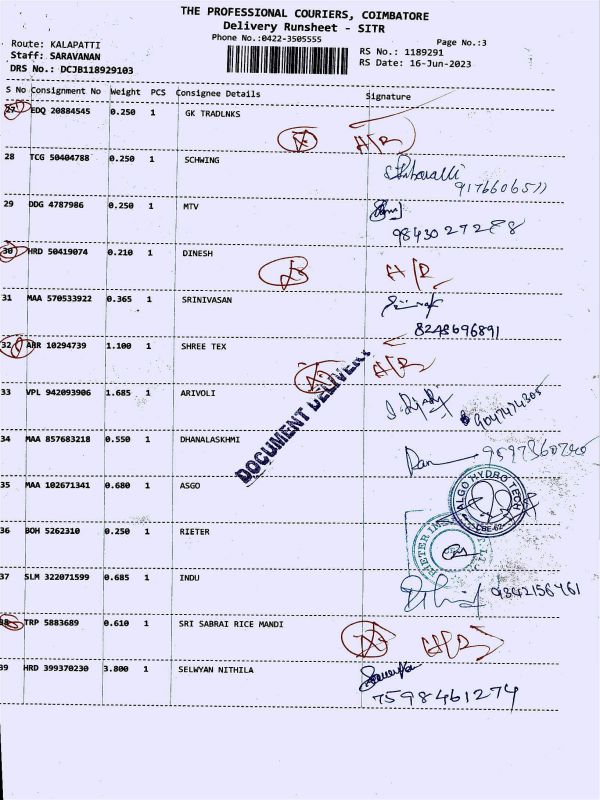 THE PROFESSIONAL COURIERS, COIMBATORE
Delivery Runsheet - SITR
Phone No.:0422-3505555
Page No.:3
Route: KALAPATTI
RS No.: 1189291
Staff: SARAVANAN
RS Date: 16-Jun-2023
DRS No.: DCJB118929103
S No Consignment No Weight PCS Consignee Details Signature
27 EDQ 20884545 0.250 1 GK TRADLNKS
A/R
28 TCG 50404788 0.250 1 SCHWING
9176606511
29 DDG 4787986 0.250 1 MTV
9843027288
30 HRD 50419074 0.210 1 DINESH
A/R
31 MAA 570533922 0.365 1 SRINIVASAN
8248696891
32 ARR 10294739 1.100 1 SHREE TEX
A/R
33 VPL 942093906 1.685 1 ARIVOLI
9047474305
DOCUMENT DELIVERY
34 MAA 857683218 0.550 1 DHANALASKHMI
35 MAA 102671341 0.680 1 ASGO
ALGO HYDRO TECH
CBE-62
36 BOH 5262310 0.250 1 RIETER
RIETER
37 SLM 322071599 0.685 1 INDU
9842156761
38 TRP 5883689 0.610 1 SRI SABRAI RICE MANDI
A/R
39 HRD 399370230 3.800 1 SELWYAN NITHILA
7598461274